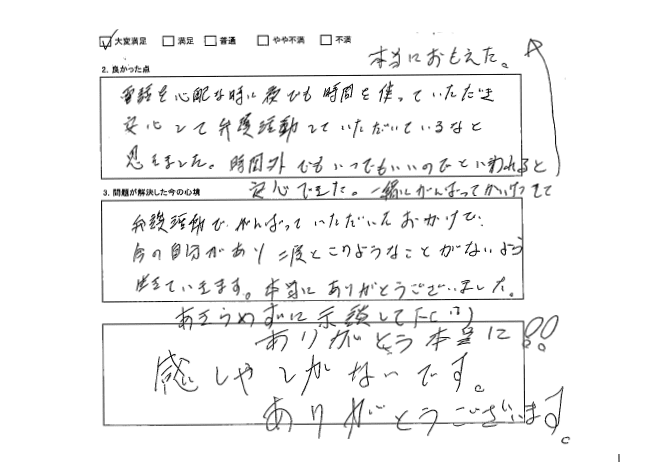 ☑大変満足 □満足 □普通 □やや不満 □不満
本当におもえた。
2. 良かった点
電話を心配な時に夜でも時間を使っていただき
安心して弁護活動していただいているなと
思えました。時間外でもいつでもいいのでといわれると
安心できた。一緒にがんばって
3. 問題が解決した今の心境
弁護活動で、がんばっていただいたおかげで、
今の自分があり二度とこのようなことがないよう
生きていきます。本当にありがとうございました。
あきらめずに示談して下さり
ありがとう本当に!!
感しゃしかないです。
ありがとうございます。